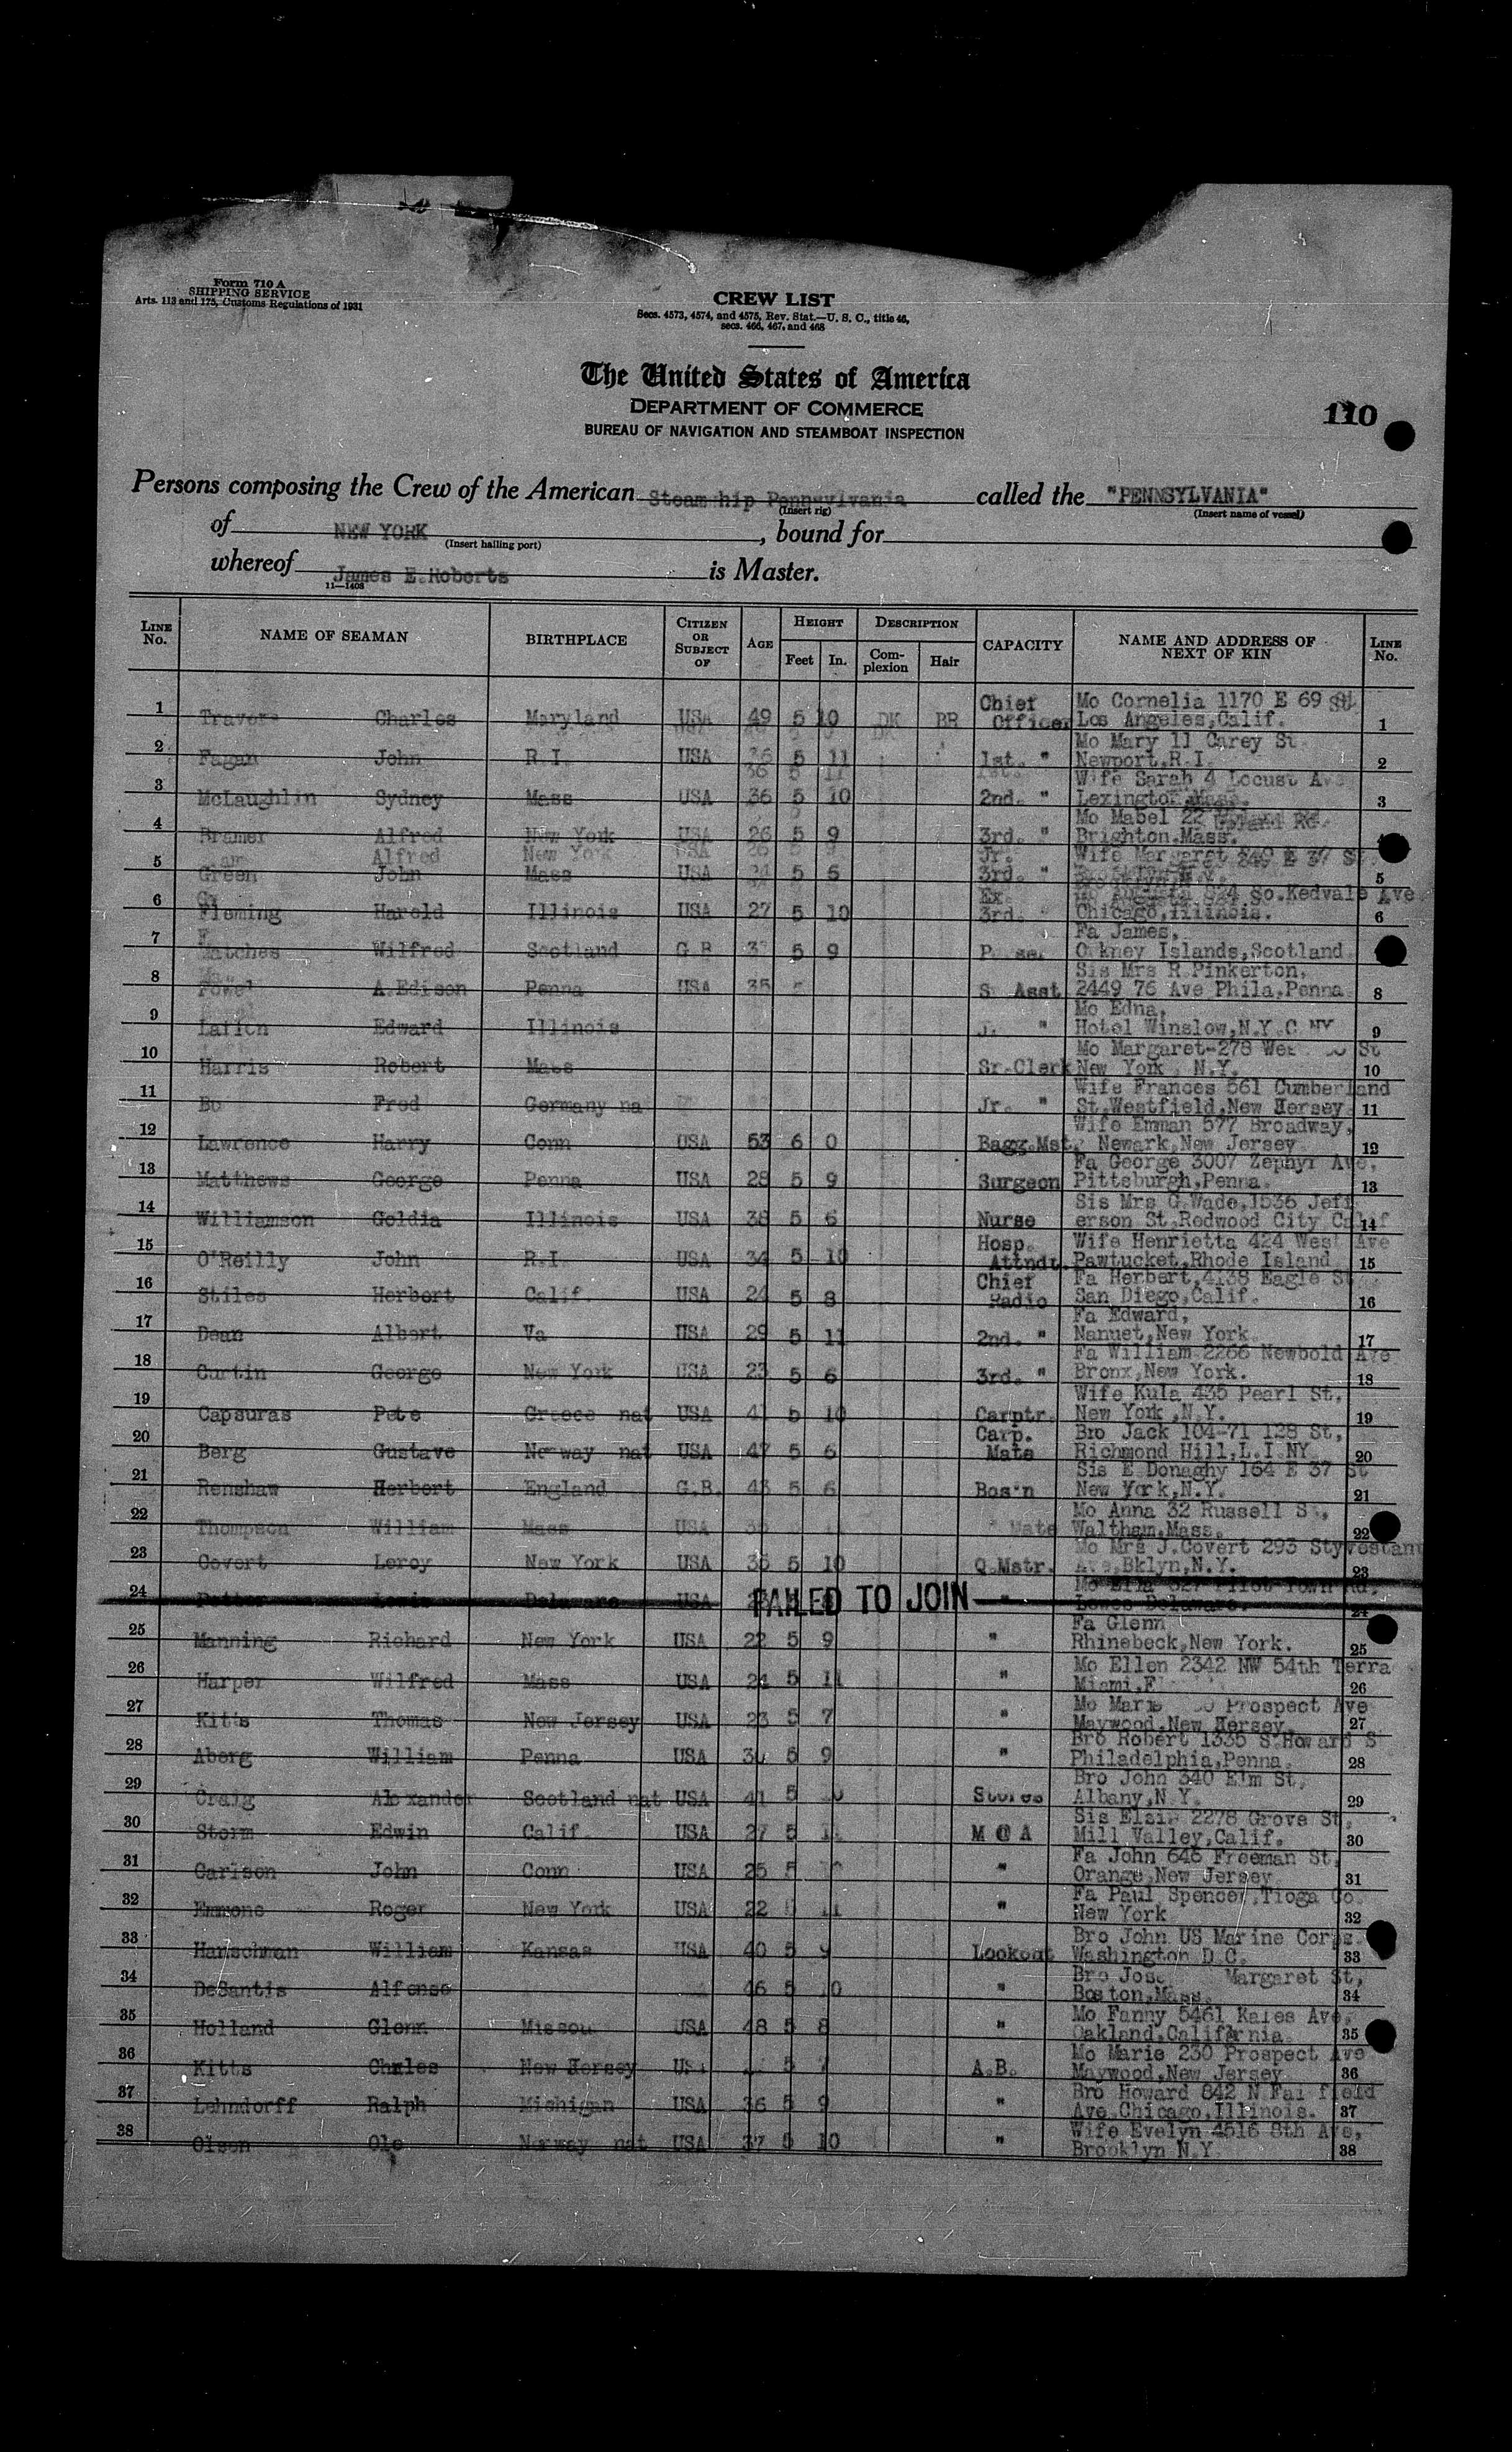 Form 710 A
SHIPPING SERVICE
Arts. 113 and 175, Customs Regulations of 1931
CREW LIST
Secs. 4573, 4574, and 4575, Rev. Stat.—U. S. C., title 46,
secs. 466, 467, and 468
The United States of America
DEPARTMENT OF COMMERCE
BUREAU OF NAVIGATION AND STEAMBOAT INSPECTION
110
Persons composing the Crew of the American Steamship Pennsylvania called the "PENNSYLVANIA"
(Insert rig) (Insert name of vessel)
of NEW YORK, bound for
(Insert hailing port)
whereof James E.Roberts is Master.
11—1408
LINE No. NAME OF SEAMAN BIRTHPLACE CITIZEN OR SUBJECT OF AGE HEIGHT Feet In. DESCRIPTION Complexion Hair CAPACITY NAME AND ADDRESS OF NEXT OF KIN LINE No.
1 Travers Charles Maryland USA 49 5 10 DK BR Chief Officer Mo Cornelia 1170 E 69 St Los Angeles,Calif. 1
2 Fagan John R.I. USA 36 5 11 1st. " Mo Mary 11 Carey St Newport,R.I. 2
3 McLaughlin Sydney Mass USA 36 5 10 2nd. " Wife Sarah 4 Locust Ave Lexington,Mass. 3
4 Bramer Alfred New York USA 26 5 9 3rd. " Mo Mabel 22 Rd. Brighton.Mass.
5 Green John Mass USA 24 5 6 Jr. 3rd. " Wife Margaret 349 E 37 St 5
6 Fleming Harold Illinois USA 27 5 10 Ex. 3rd. " 824 So.Kedvale Ave Chicago,Illinois. 6
7 Matches Wilfred Scotland G.B 5 9 Fa James, Orkney Islands,Scotland
8 A.Edison Penna USA 35 Asst Sis Mrs R.Pinkerton, 2449 76 Ave Phila,Penna 8
9 Edward Illinois " Mo Edna, Hotel Winslow,N.Y.C NY 9
10 Harris Robert Mass Sr.Clerk Mo Margaret-278 St New York N.Y. 10
11 Fred Germany na Jr. " Wife Frances 561 Cumberland St,Westfield,New Jersey 11
12 Lawrence Harry Conn USA 53 6 0 Bagg.Mst. Wife Emman 577 Broadway, Newark,New Jersey 12
13 Matthews George Penna USA 28 5 9 Surgeon Fa George 3007 Zephyr Ave, Pittsburgh,Penna. 13
14 Williamson Goldia Illinois USA 38 5 6 Nurse Sis Mrs G.Wade,1536 Jeff erson St,Redwood City Calif 14
15 O'Reilly John R.I USA 34 5 10 Hosp. Attndt. Wife Henrietta 424 West Ave Pawtucket,Rhode Island 15
16 Stiles Herbert Calif USA 24 5 8 Chief Radio Fa Herbert,4138 Eagle St San Diego,Calif. 16
17 Dean Albert Va USA 29 5 11 2nd. " Fa Edward, Nanuet,New York 17
18 Curtin George New York USA 23 5 6 3rd. " Fa William 2266 Newbold Ave Bronx,New York. 18
19 Capsuras Pete Greece nat USA 41 5 10 Carptr. Wife Kula 435 Pearl St, New York,N.Y. 19
20 Berg Gustave Norway nat USA 47 5 6 Carp. Mate Bro Jack 104-71 128 St, Richmond Hill,L.I NY 20
21 Renshaw Herbert England G.B. 43 5 6 Bos'n Sis E Donaghy 164 E 37 St New York,N.Y. 21
22 Thompson William Mass USA " Mate Mo Anna 32 Russell St, Waltham,Mass. 22
23 Covert Leroy New York USA 36 5 10 Q.Mstr. Mo Mrs J.Covert 293 Styvestant Ave,Bklyn,N.Y. 23
24 Potter Lewis Delaware USA FAILED TO JOIN " Mo Ella 327 Pilot Town Rd. Lewes Delaware. 24
25 Manning Richard New York USA 22 5 9 " Fa Glenn Rhinebeck,New York. 25
26 Harper Wilfred Mass USA 24 5 11 " Mo Ellen 2342 NW 54th Terra Miami,F 26
27 Kitts Thomas New Jersey USA 23 5 7 " Mo Marie Prospect Ave Maywood,New Jersey. 27
28 Aberg William Penna USA 5 9 " Bro Robert 1335 S.Howard S Philadelphia,Penna 28
29 Craig Alexander Scotland nat USA 41 5 Stores Bro John 340 Elm St, Albany,N.Y. 29
30 Storm Edwin Calif USA 27 5 11 M @ A Sis Elsie 2278 Grove St. Mill Valley,Calif. 30
31 Carlson John Conn USA 25 5 " Fa John 646 Freeman St, Orange,New Jersey 31
32 Emmons Roger New York USA 22 5 11 " Fa Paul Spencer,Tioga Co. New York 32
33 Hanschman William Kansas USA 40 5 9 Lookout Bro John US Marine Corps. Washington D.C. 33
34 DeSantis Alfonso 46 5 10 " Bro Margaret St, Boston,Mass. 34
35 Holland Glenn USA 48 5 8 " Mo Fanny 5461 Kales Ave, Oakland,California 35
36 Kitts Chales New Jersey 5 7 A.B. Mo Marie 230 Prospect Ave Maywood,New Jersey 36
37 Lehndorff Ralph Michigan USA 36 5 9 " Bro Howard 842 N.Fairfield Ave,Chicago,Illinois. 37
38 Olsen Ole Norway nat USA 37 5 10 " Wife Evelyn 4516 8th Ave, Brooklyn N.Y 38